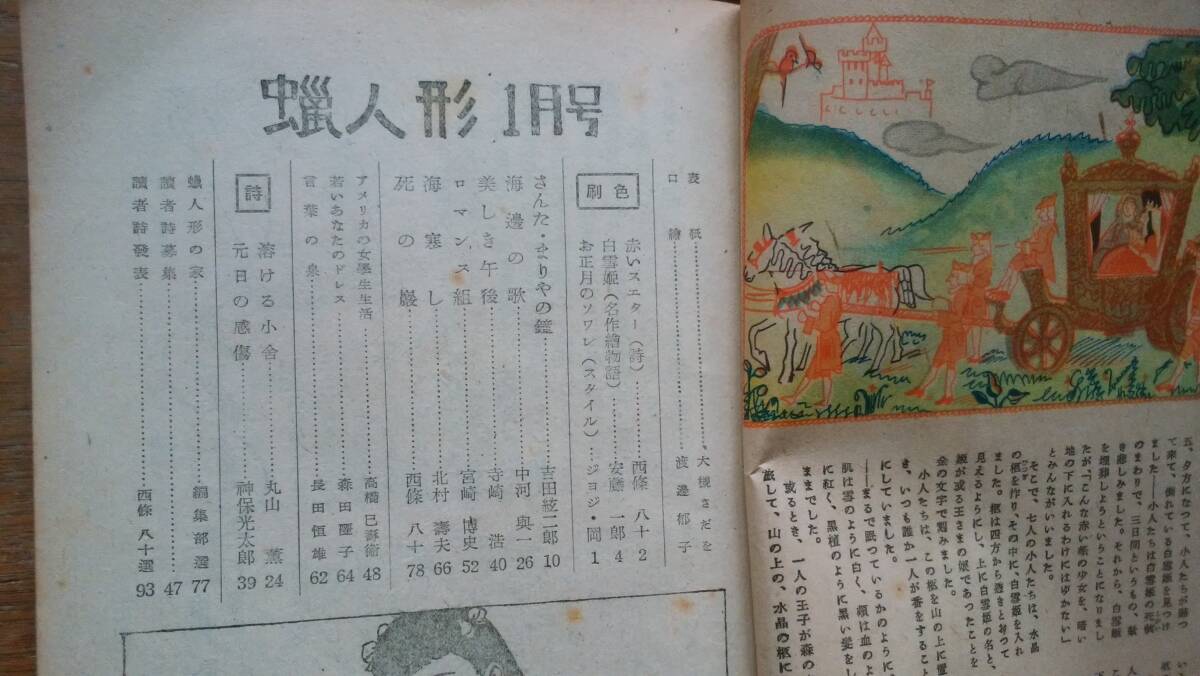 蠟人形 1月号
表紙……大槻さだを
口繪……渡邊郁子
色刷
赤いスエター(詩)……西條八十 2
白雪姬(名作繪物語)……安藤一郎 4
お正月のソワレ(スタイル)……ジョジ・岡 1
さんた・まりやの鐘……吉田絃二郎 10
海邊の歌……中河與一 26
美しき午後……寺崎浩 40
ロマンス組……宮崎博史 52
海寒し……北村壽夫 66
死の巖……西條八十 78
アメリカの女學生生活……高橋巳壽衛 48
若いあなたのドレス……森田隆子 64
言葉の泉……長田恒雄 62
詩
溶ける小舍……丸山薫 24
元日の感傷……神保光太郎 39
蠟人形の家……編集部選 77
讀者詩募集……47
讀者詩發表……西條八十選 93
五、夕方になつて、小人たちが歸つ
て來て、倒れている白雪姬を見つけ
ました――小人たちは白雪姬の死骸
のまわりで、三日間というもの、歎
き悲しみました。それから、白雪姬
を埋葬しようということになりまし
たが「こんな赤い頰の少女を、暗い
地の下に入れるわけにはゆかない」
とみんながいいました。
そこで、七人の小人たちは、水晶
の柩を作り、その中に、白雪姬を入れ
ました。柩は四方から透きとおつて
見えるようにし、上に白雪姬の名と、
姬が或る王さまの娘であつたことを
金の文字で刻みました。
小人たちは、この柩を山の上に置
き、いつも誰か一人が番をすること
にしていました。
――まるで眠つているかのように
肌は雪のように白く、頰は血のよ
に紅く、黑檀のように黑い髮をし
ままでした。
或るとき、一人の王子が森の
旅して、山の上の、水晶の柩に